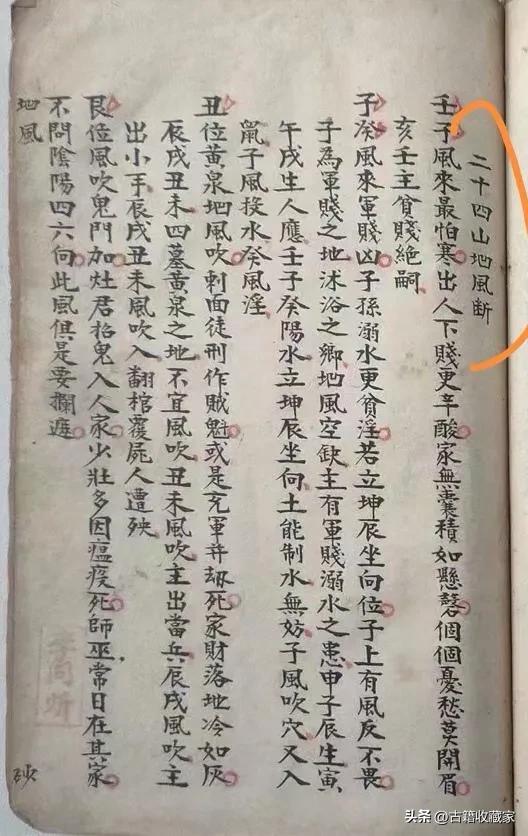 二十四山地風断
壬子風來最怕寒出人下賤更辛酸家無囊積如懸磬個個憂愁莫開眉
亥壬主貧賤絕嗣
子癸風來軍賤凶子孫溺水更貧淫若立坤辰坐向位子上有風反不畏
子為軍賤之地沭浴之鄉地風空缺主有軍賤溺水之患申子辰生寅
午戌生人應壬子癸陽水立坤辰坐向土能制水無妨子風吹穴又入
鼠子風投水癸風淫
丑位黃泉地風吹刺面徒刑作賊魁或是充軍并刼死家財落地冷如灰
辰戌丑未四墓黃泉之地不宜風吹丑未風吹主出當兵辰戌風吹主
出小手辰戌丑未風吹入翻棺覆屍人遭殃
艮位風吹鬼門加灶君招鬼入人家少壯多因瘟疫死師巫常日在其家
不問陰陽四六向此風俱是要攔遮
地風
头条 @古籍收藏家